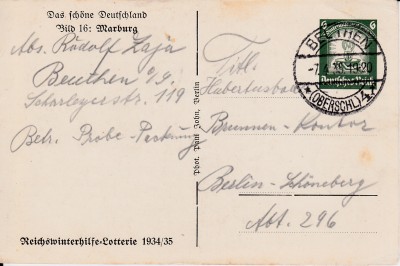 Das schöne Deutschland
Bild 16: Marburg
Abs. Rudolf Zaja
Beuthen O/S.
Scharleyerstr. 119
Betr. Probe-Packung
Reichswinterhilfe-Lotterie 1934/35
Phot. Paul John, Berlin
6 6
Deutsches Reich
BEUTHEN
(OBERSCHL) 4
Titl.
Hubertusbad
Brunnen-Kontor
Berlin-Schöneberg
Abt. 296